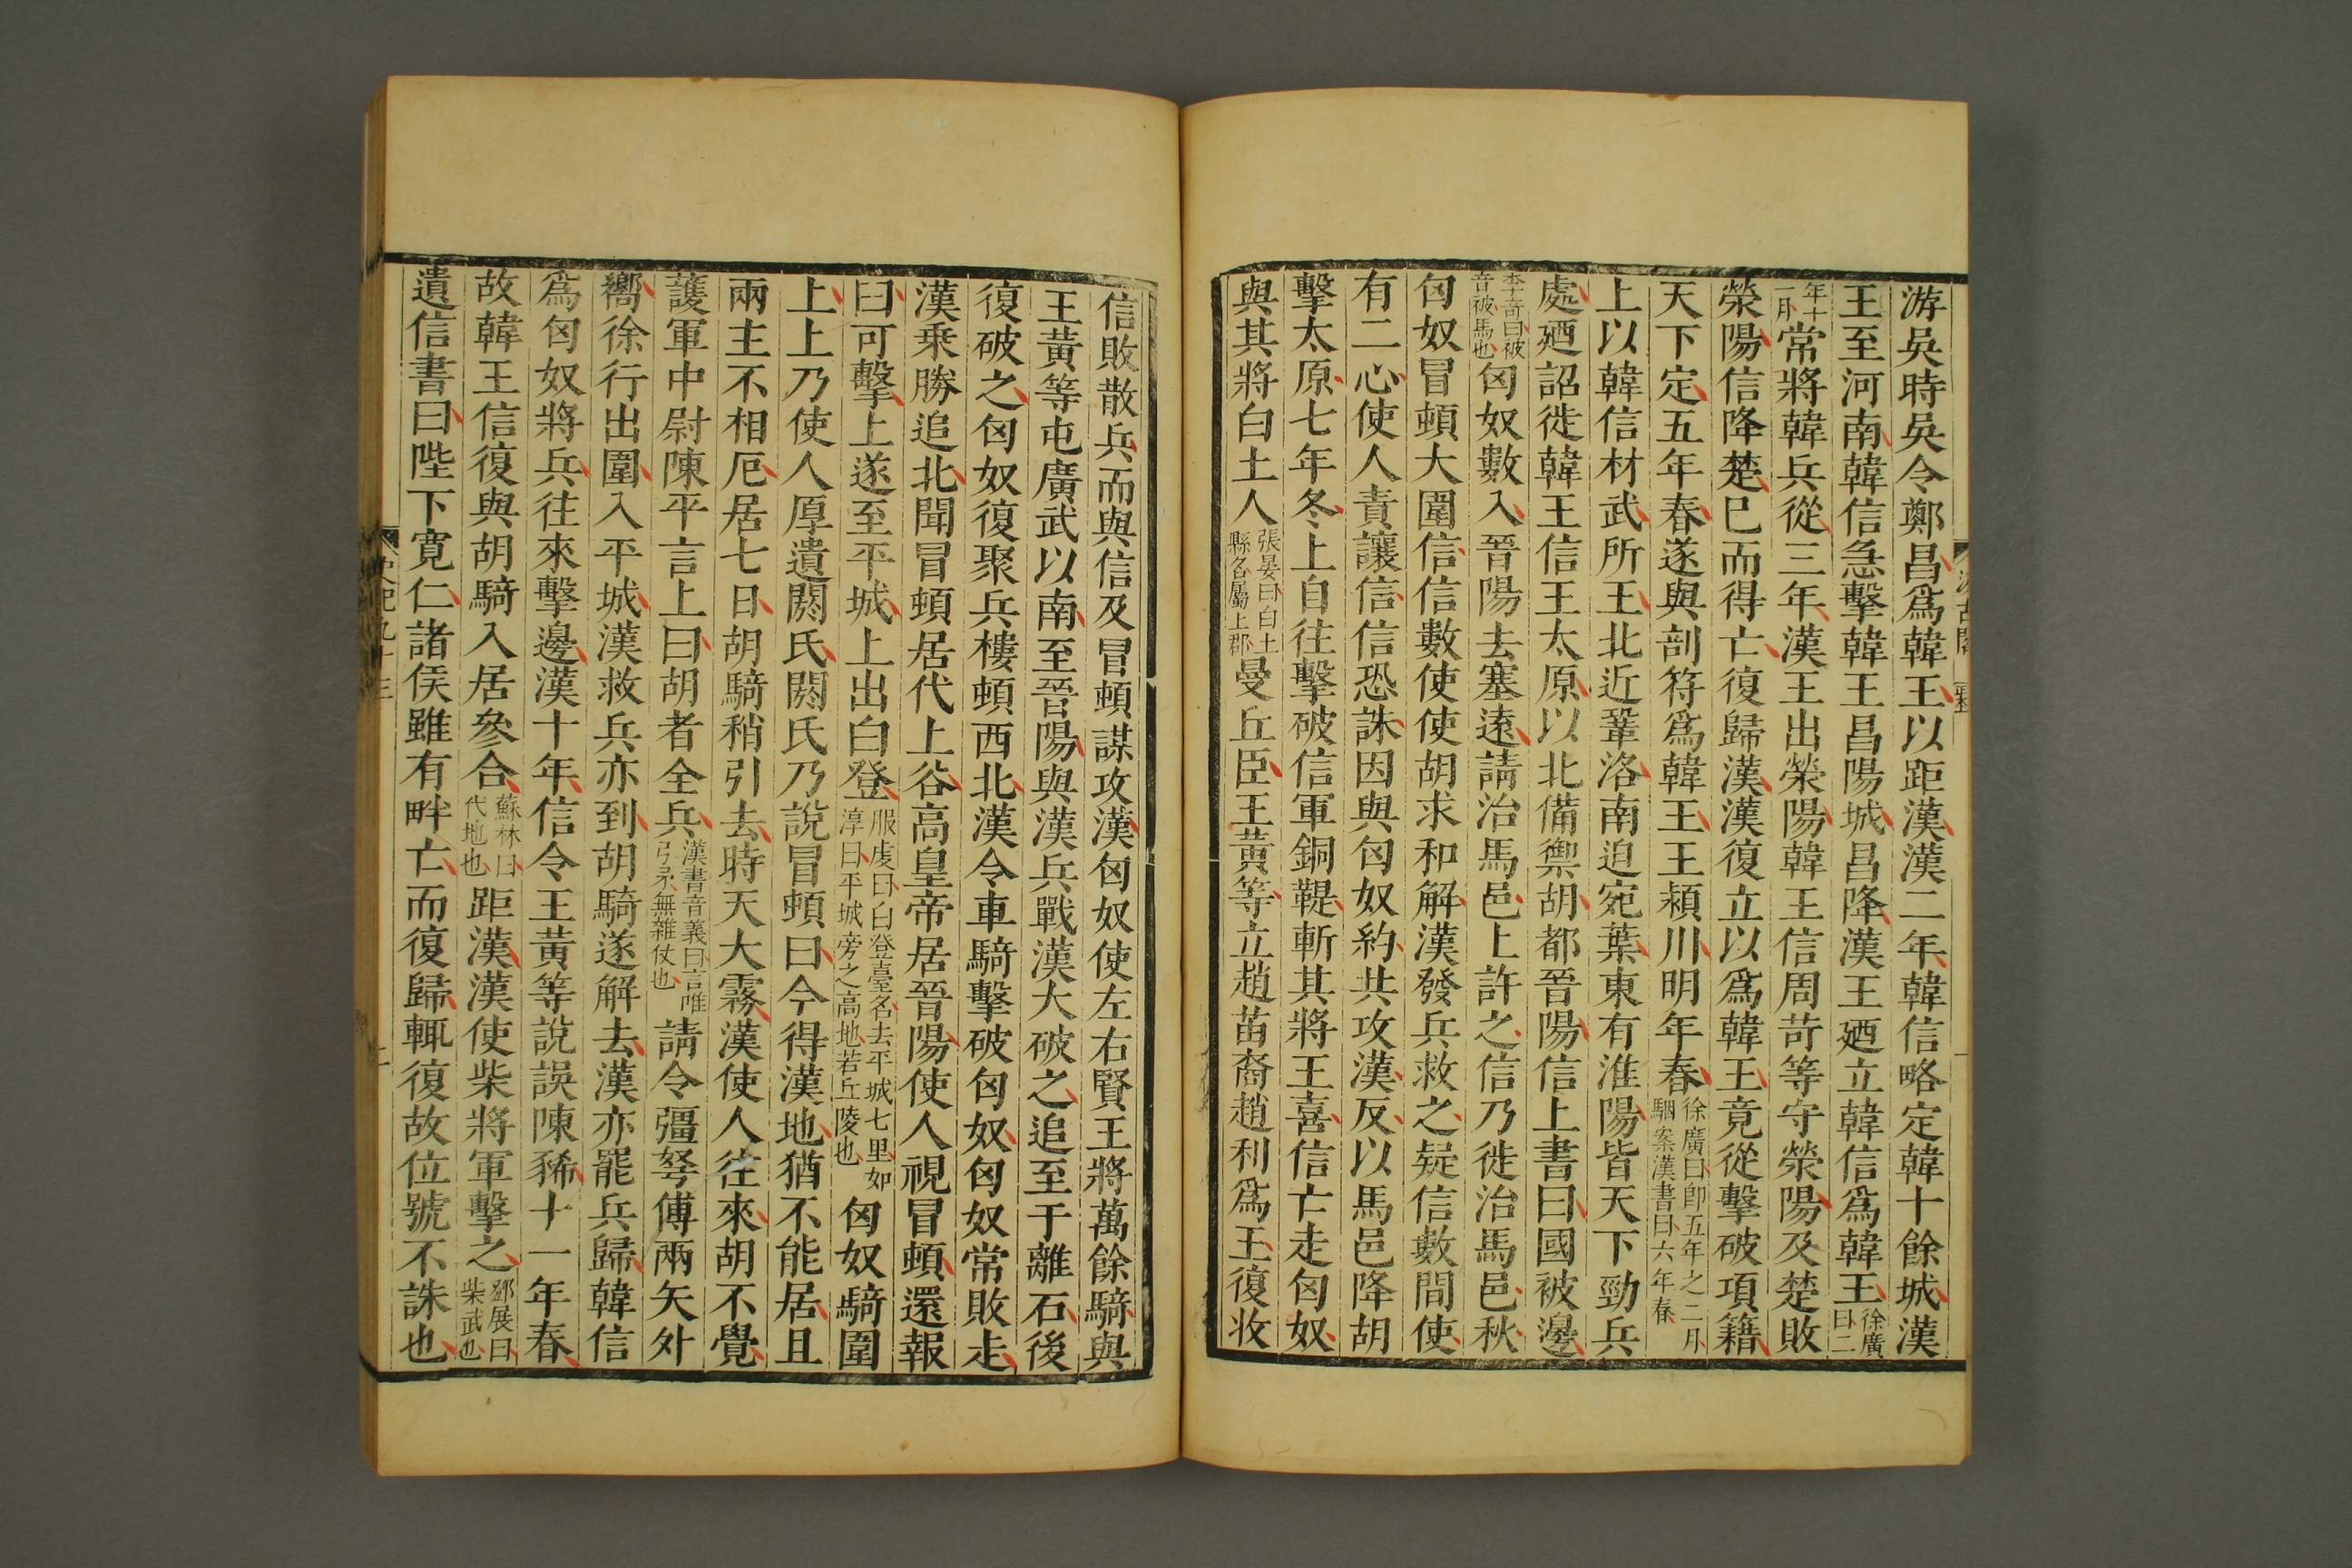 游吳時吳令鄭昌爲韓王以距漢漢二年韓信略定韓十餘城漢
王至河南韓信急擊韓王昌陽城昌降漢王廼立韓信爲韓王徐廣曰二
年十一月常將韓兵從三年漢王出滎陽韓王信周苛等守滎陽及楚敗
滎陽信降楚已而得亡復歸漢漢復立以爲韓王竟從擊破項籍
天下定五年春遂與剖符爲韓王王潁川明年春徐廣曰卽五年之二月駰案漢書曰六年春
上以韓信材武所王北近鞏洛南迫宛葉東有淮陽皆天下勁兵
處廼詔徙韓王信王太原以北備禦胡都晉陽信上書曰國被邊
李奇曰被音被馬也匈奴數入晉陽去塞遠請治馬邑上許之信乃徙治馬邑秋
匈奴冒頓大圍信信數使使胡求和解漢發兵救之疑信數間使
有二心使人責讓信信恐誅因與匈奴約共攻漢反以馬邑降胡
擊太原七年冬上自往擊破信軍銅鞮斬其將王喜信亡走匈奴
與其將白土人張晏曰白土縣名屬上郡曼丘臣王黃等立趙苗裔趙利爲王復收
信敗散兵而與信及冒頓謀攻漢匈奴使左右賢王將萬餘騎與
王黃等屯廣武以南至晉陽與漢兵戰漢大破之追至于離石後
復破之匈奴復聚兵樓頓西北漢令車騎擊破匈奴匈奴常敗走
漢乗勝追北聞冒頓居代上谷高皇帝居晉陽使人視冒頓還報
曰可擊上遂至平城上出白登服虔曰白登臺名去平城七里如淳曰平城旁之高地若丘陵也匈奴騎圍
上上乃使人厚遺閼氏閼氏乃說冒頓曰今得漢地猶不能居且
兩主不相厄居七日胡騎稍引去時天大霧漢使人往來胡不覺
護軍中尉陳平言上曰胡者全兵漢書音義曰言唯弓矛無雜仗也請令彊弩傅兩矢外
嚮徐行出圍入平城漢救兵亦到胡騎遂解去漢亦罷兵歸韓信
爲匈奴將兵往來擊邊漢十年信令王黃等說誤陳豨十一年春
故韓王信復與胡騎入居參合蘇林曰代地也距漢漢使柴將軍擊之鄧展曰柴武也
遺信書曰陛下寬仁諸侯雖有畔亡而復歸輒復故位號不誅也